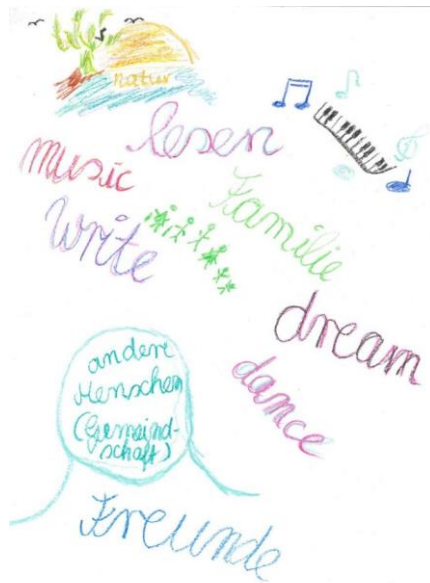 natur
lesen
music
Familie
Write
dream
dance
andere
Menschen
(Gemeind-
schaft)
Freunde